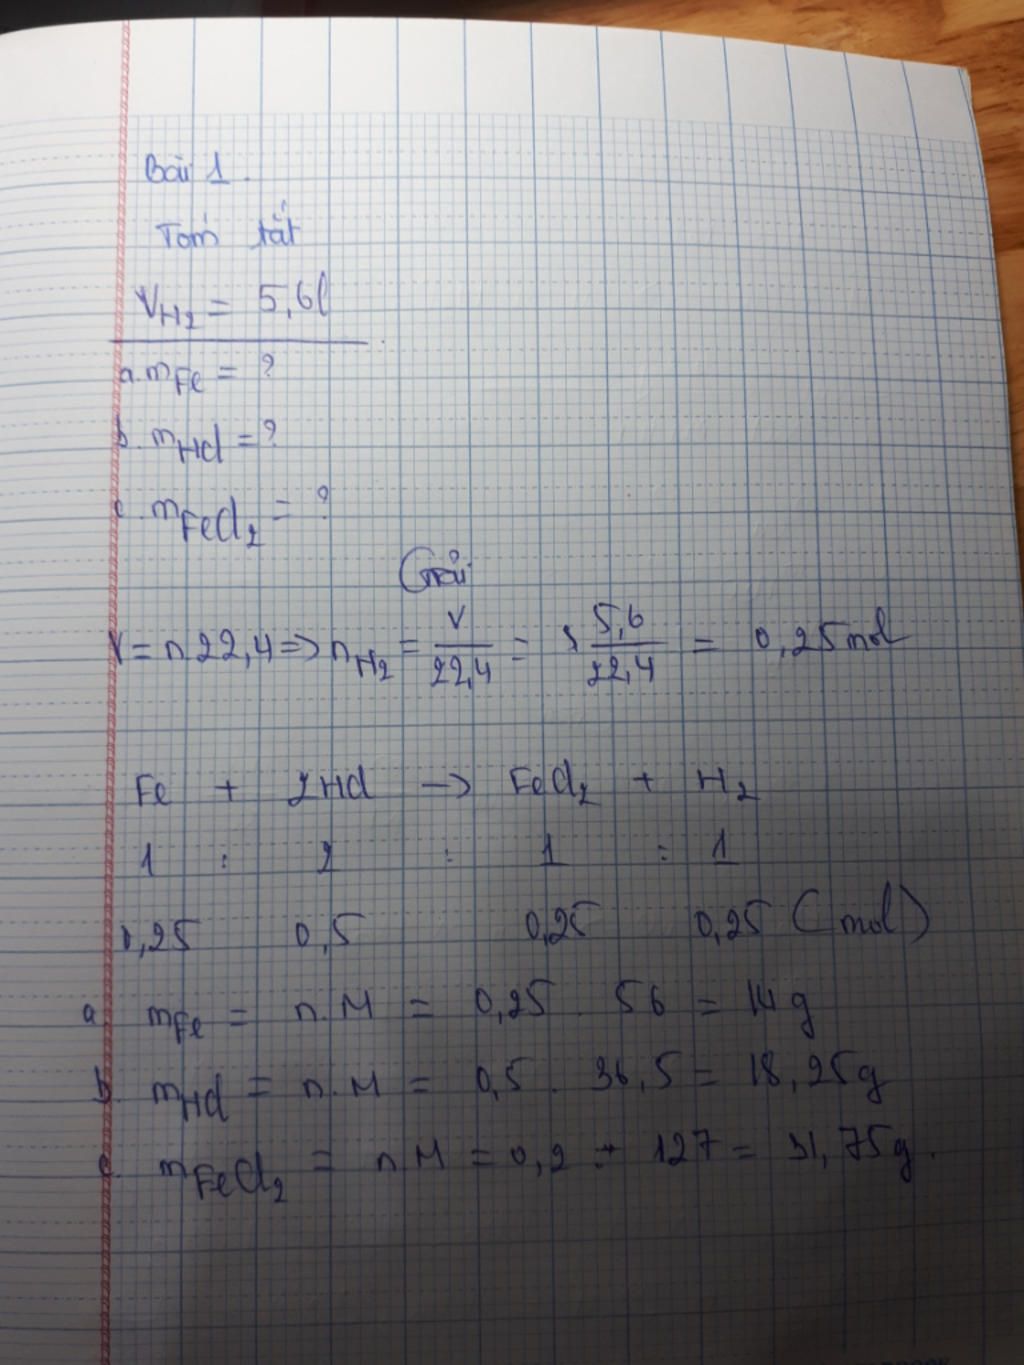 Bài 1.
Tóm tắt
V_H₂ = 5,6l
a. m_Fe = ?
b. m_HCl = ?
c. m_FeCl₂ = ?
Giải
V = n.22,4 => n_H₂ = V/22,4 = 5,6/22,4 = 0,25 mol
Fe + 2HCl → FeCl₂ + H₂
1 : 2 : 1 : 1
0,25 0,5 0,25 0,25 (mol)
a m_Fe = n.M = 0,25 . 56 = 14 g
b. m_HCl = n.M = 0,5 . 36,5 = 18,25g
c. m_FeCl₂ = n.M = 0,2 . 127 = 31,75g.